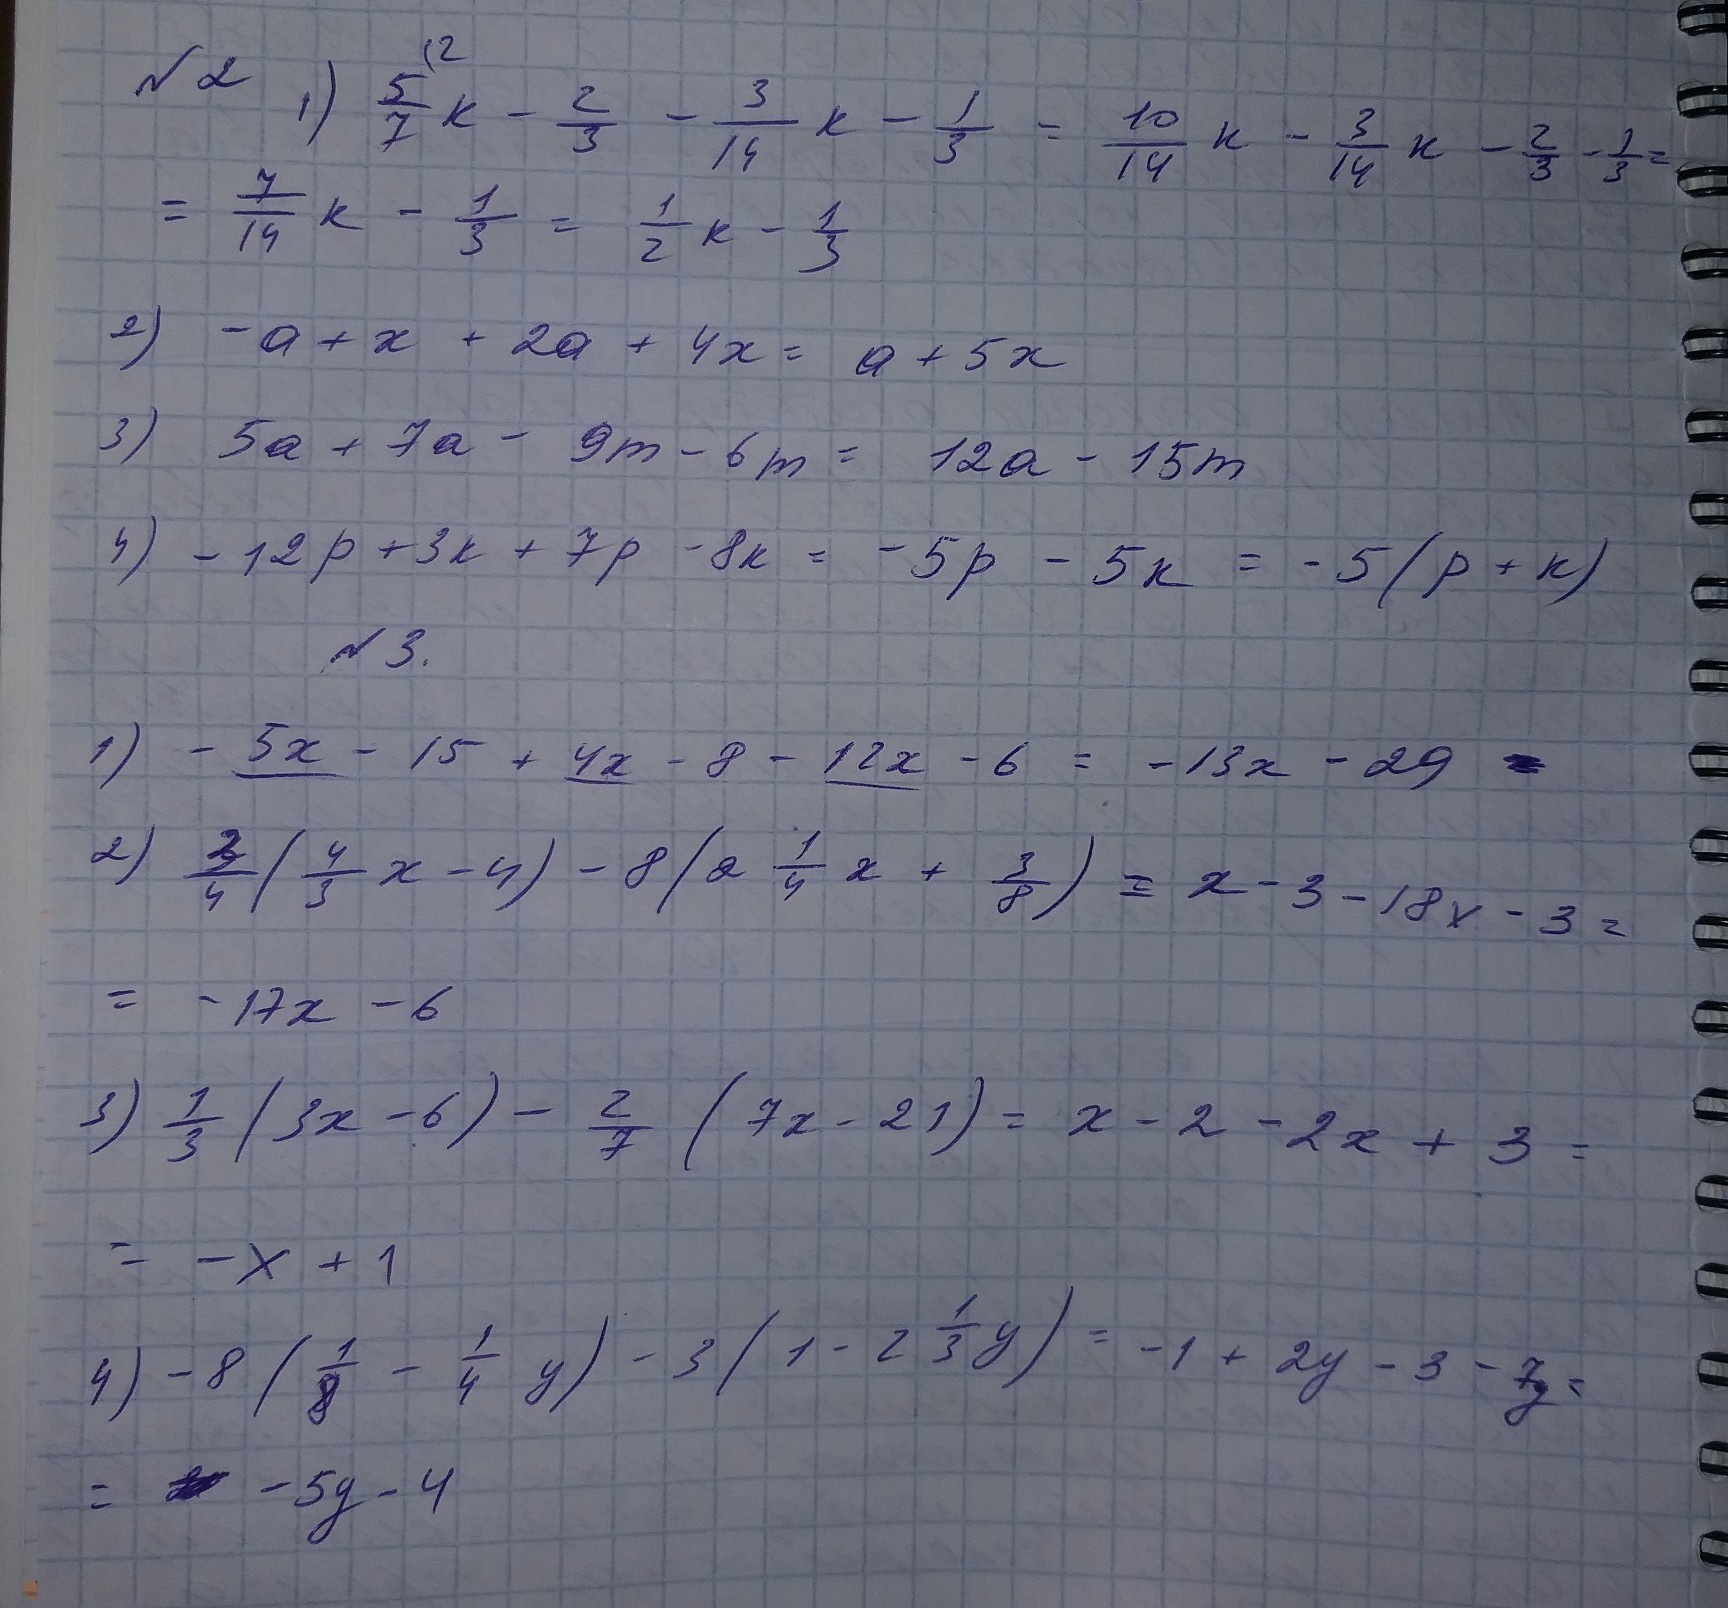 №2 1) 5/7 (2 к - 2/3 - 3/14 к - 1/3 = 10/14 к - 3/14 к - 2/3 - 1/3 =
= 7/14 к - 1/3 = 1/2 к - 1/3
2) -a + x + 2a + 4x = a + 5x
3) 5a + 7a - 9m - 6m = 12a - 15m
4) -12p + 3к + 7p - 8к = -5p - 5к = -5(p + к)
№3.
1) - 5x - 15 + 4x - 8 - 12x - 6 = -13x - 29
2) 3/4 (4/3 x - 4) - 8(2 1/4 x + 3/8) = x - 3 - 18x - 3 =
= -17x - 6
3) 1/3 (3x - 6) - 2/7 (7x - 21) = x - 2 - 2x + 3 =
= -x + 1
4) -8 (1/8 - 1/4 y) - 3(1 - 2 1/3 y) = -1 + 2y - 3 - 7y =
= -5y - 4